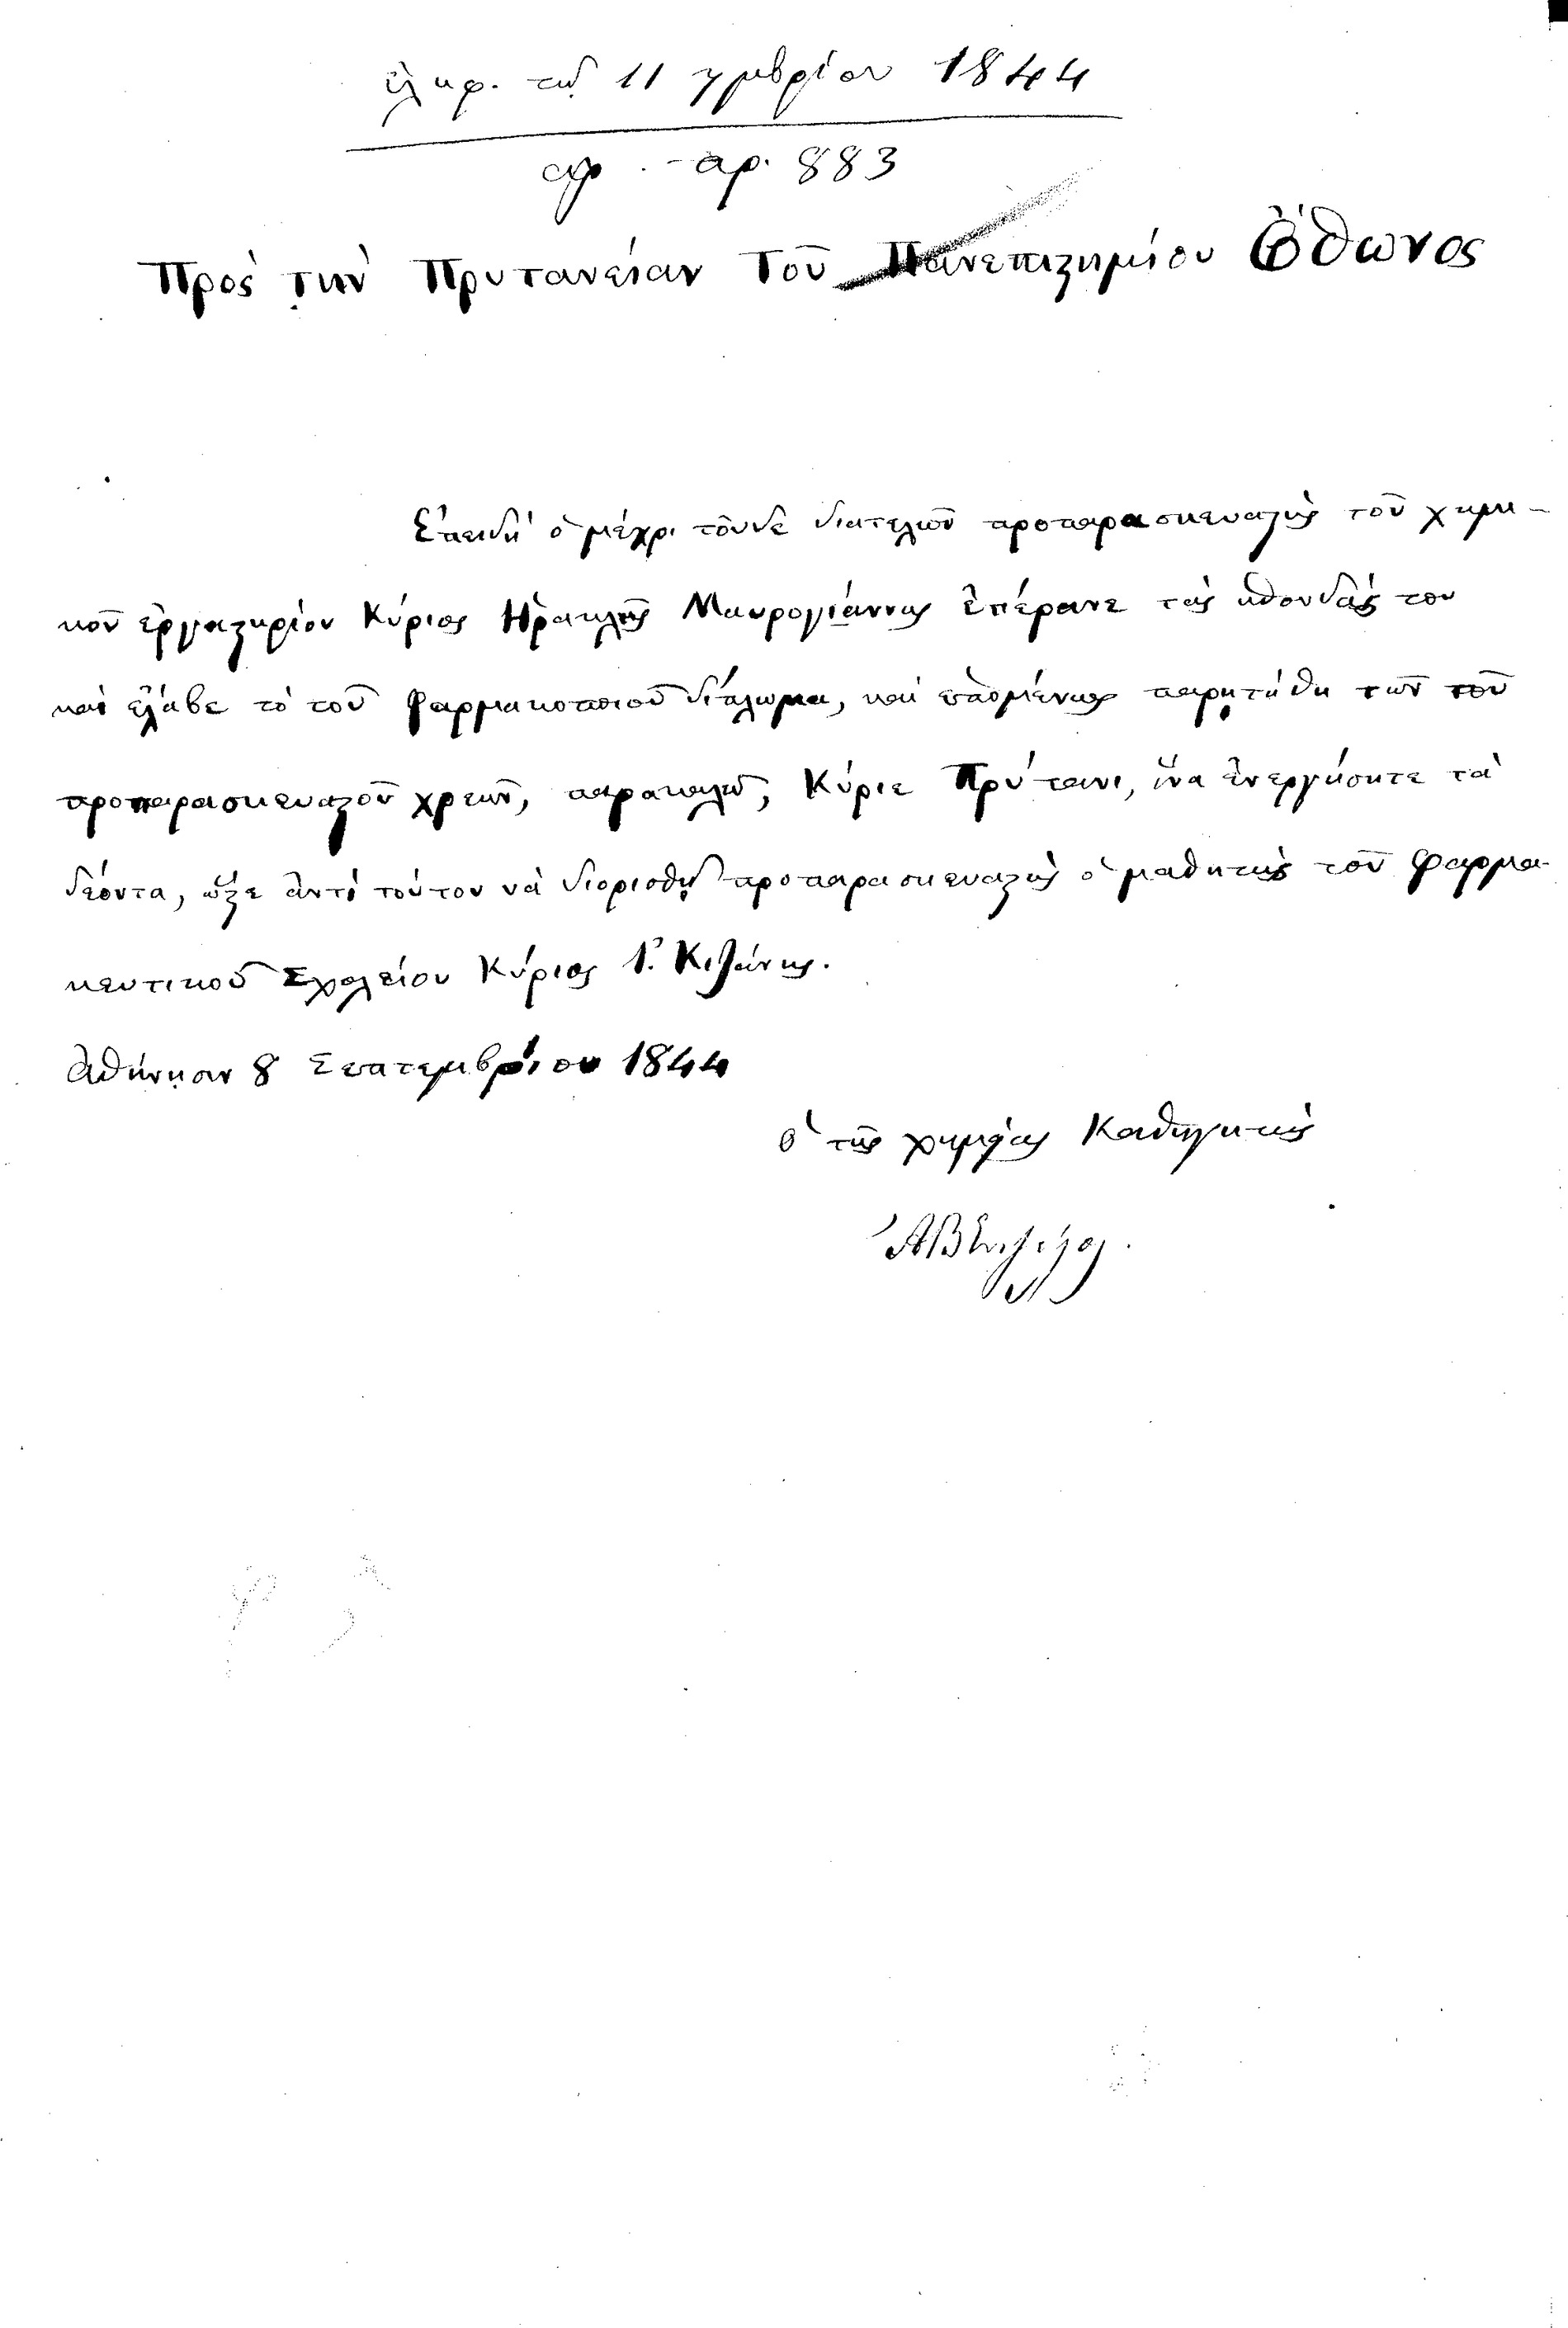 τῇ 11 7μβρίου 1844
ἀρ. 883
Πρὸς τὴν Πρυτανείαν Τοῦ Πανεπιστημίου Ὄθωνος
Ἐπειδὴ ὁ μέχρι τοῦδε διατελῶν προπαρασκευαστὴς τοῦ χημι-
κοῦ ἐργαστηρίου Κύριος Ἡρακλῆς Μαυρογιάννης ἐπέρανε τὰς σπουδάς του
καὶ ἔλαβε τὸ τοῦ Φαρμακοποιοῦ δίπλωμα, καὶ ἑπομένως παρῃτήθη τῶν τοῦ
προπαρασκευαστοῦ χρεῶν, παρακαλῶ, Κύριε Πρύτανι, ἵνα ἐνεργήσητε τὰ
δέοντα, ὥστε ἀντὶ τούτου νὰ διορισθῇ προπαρασκευαστὴς ὁ μαθητὴς τοῦ Φαρμα-
κευτικοῦ Σχολείου Κύριος
Ἀθήνησιν 8 Σεπτεμβρίου 1844
ὁ τῆς χημείας Καθηγητὴς